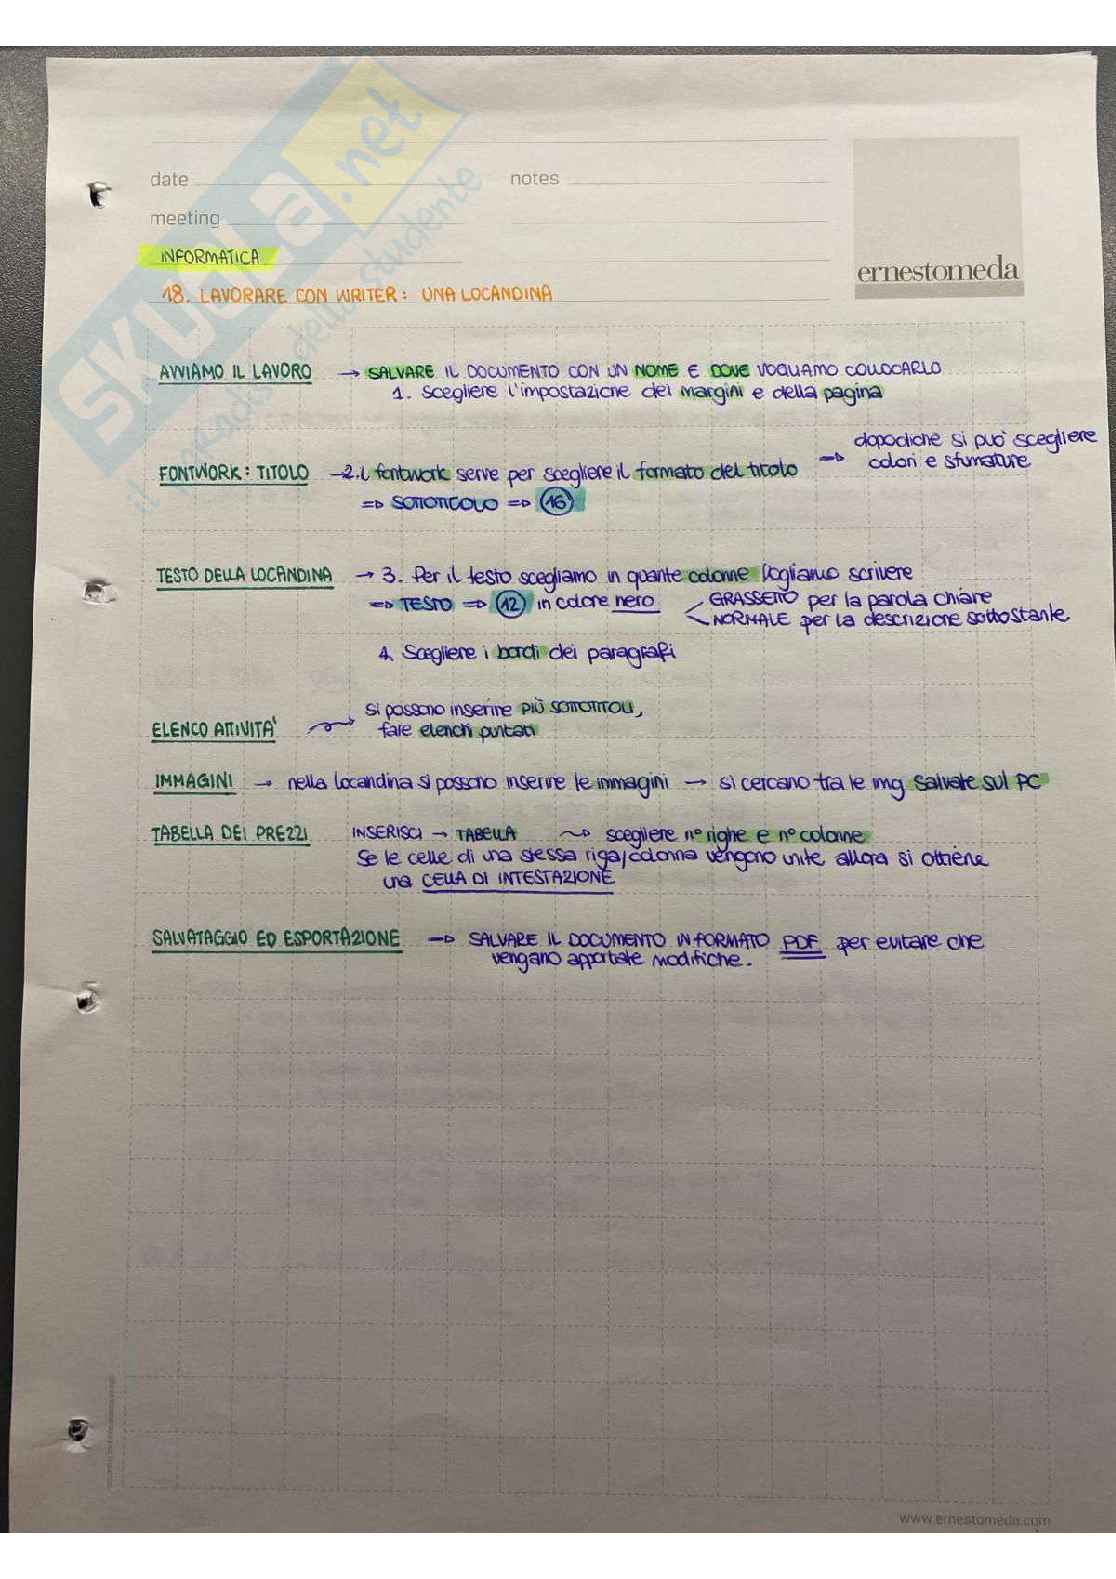 SKUOLA.net
il paradiso dello studente
date
notes
meeting
ernestomeda
INFORMATICA
18. LAVORARE CON WRITER: UNA LOCANDINA
AVVIAMO IL LAVORO → SALVARE IL DOCUMENTO CON UN NOME E DOVE VOGLIAMO COLLOCARLO
1. Scegliere l'impostazione dei margini e della pagina
FONTWORK: TITOLO → 2. il fontwork serve per scegliere il formato del titolo ⇒ dopodiche si può scegliere
colori e sfumature
⇒ SOTTOTITOLO ⇒ 16
TESTO DELLA LOCANDINA → 3. Per il testo scegliamo in quante colonne vogliamo scrivere
⇒ TESTO ⇒ 12 in colore nero GRASSETTO per la parola chiare
NORMALE per la descrizione sottostante
4. Scegliere i bordi dei paragrafi
ELENCO ATTIVITA' → si possono inserire PIÙ SOTTOTITOLI,
fare elenchi puntati
IMMAGINI → nella locandina si possono inserire le immagini → si cercano tra le img salvate sul PC
TABELLA DEI PREZZI INSERISCI → TABELLA → scegliere n° righe e n° colonne
Se le celle di una stessa riga/colonna vengono unite allora si ottiene
una CELLA DI INTESTAZIONE
SALVATAGGIO ED ESPORTAZIONE ⇒ SALVARE IL DOCUMENTO IN FORMATO PDF per evitare che
vengano apportate modifiche.
www.ernestomeda.com